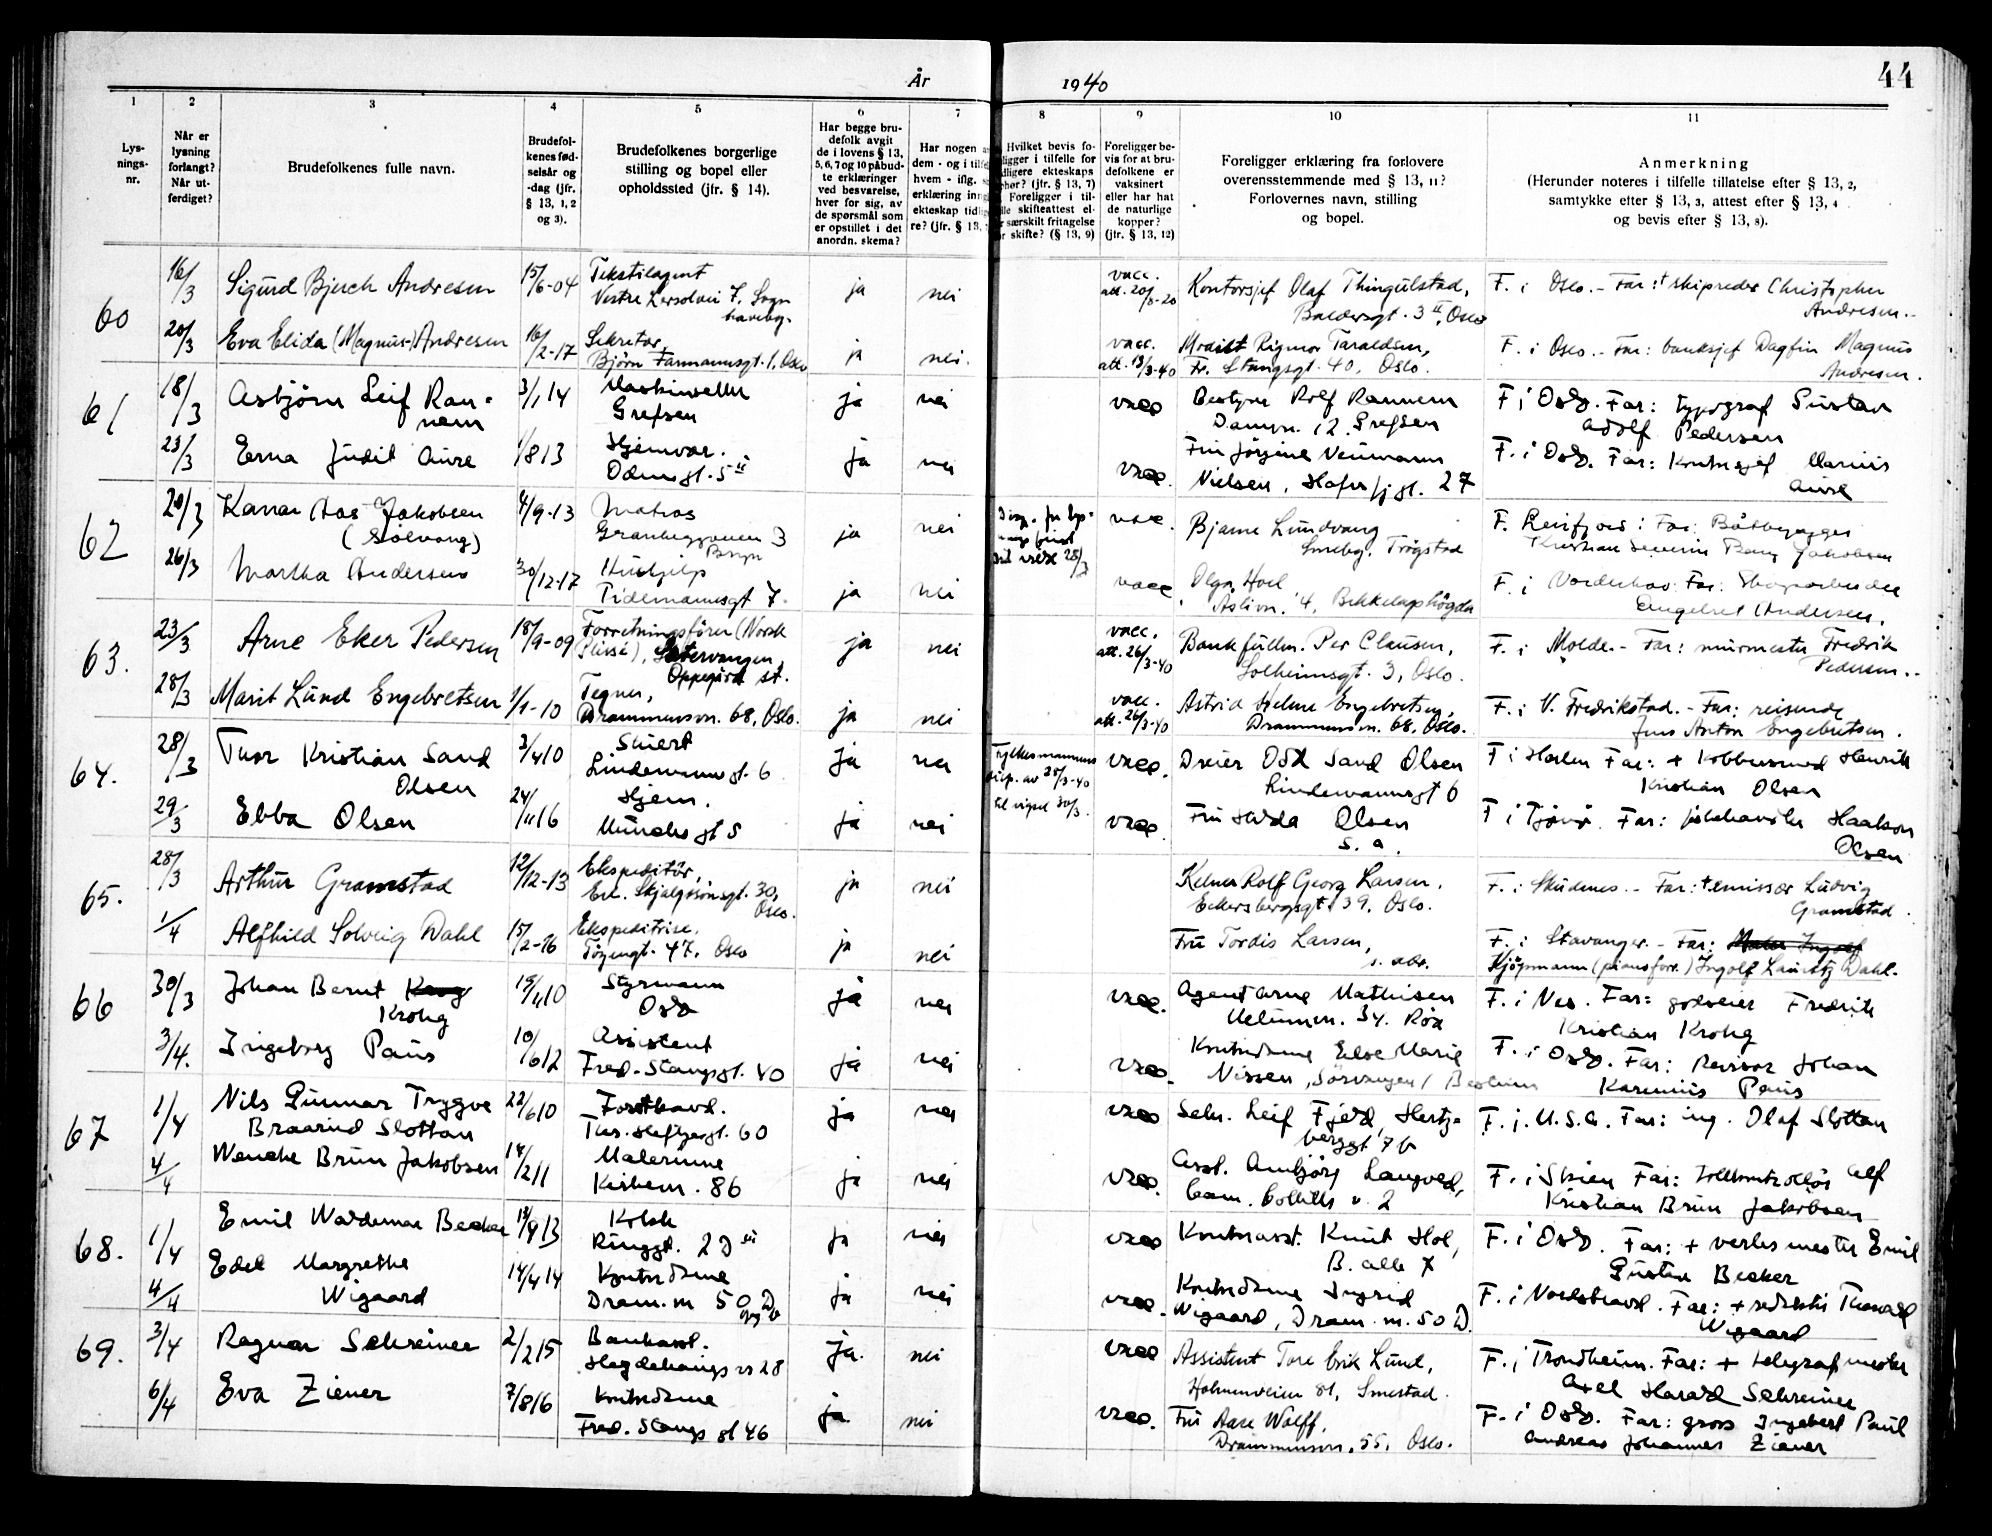 År 1940
44
1 2 3 4 5 6 7 8 9 10 11
Lys-
nings-
nr.
Når er
lysning
forlangt?
Når ut-
ferdiget?
Brudefolkenes fulle navn.
Brudefol-
kenes fød-
selsår og
-dag (jfr.
§ 13, 1, 2
og 3).
Brudefolkenes borgerlige
stilling og bopel eller
opholdssted (jfr. § 14).
Har begge bru-
defolk avgit
de i lovens § 13,
5, 6, 7 og 10 påbud-
te erklæringer
ved besvarelse,
hver for sig, av
de spørsmål som
er opstillet i det
anordn. skema?
Har nogen
dem - og i
hvem - iflg.
erklæring
ekteskap
re? (jfr. § 13,
Hvilket bevis fo-
ligger i tilfelle for
ekteskaps
(jfr. § 13, 7)
Foreligger i til-
skifteattest el-
særskilt fritagelse
skifte? (§ 13, 9)
Foreligger be-
vis for at bru-
defolkene er
vaksinert
eller har hat
de naturlige
kopper?
(jfr. § 13, 12)
Foreligger erklæring fra forlovere
overensstemmende med § 13, 11?
Forlovernes navn, stilling
og bopel.
Anmerkning
(Herunder noteres i tilfelle tillatelse efter § 13, 2,
samtykke efter § 13, 3, attest efter § 13, 4
og bevis efter § 13, 8).
60
16/3 Sigurd Bjerch Andresen 15/6-04 Tekstilagent ja nei vacc. Kontorsjef Olaf Thingulstad, F. i Oslo. - Far: † skipreder Christopher
Vestre 7, Sogn att. 20/8-20 Baldersgt. 3 II, Oslo Andresen.
haveby.
20/3 Eva Elida (Magnus-) Andresen 16/2-17 Sekretær, ja nei. vacc. Rigmor Taraldsen, F. i Oslo. - Far: banksjef Dagfin Magnus
Bjørn Farmannsgt. 1, Oslo att. 13/3-40 Fr. Stangsgt. 40, Oslo. Andresen.
61
18/3 Asbjørn Leif Ran- 3/1 14 ja nei vacc Bestyrer Rolf Rannem F i Oslo. Far: typograf Gustav
nem Grefsen 12. Grefsen Adolf Pedersen
23/3 Erna Judit Aure 1/8 13 Hjemvær. ja nei vacc. Fru Jørgine Neumann F. i Oslo. Far: Kontorsjef Marius
Odinsgt. 5 II Nielsen, 27 Aure
62
20/3 Kanar Aas Jakobsen 4/9-13 Matros ja nei vacc. Bjarne Lundvang F. Far: Båtbygger
(Sølvang) 3 Trøgstad Kristian Severin Jakobsen
Bryn
26/3 Martha Andersen 30/12-17 Hushjelp ja nei vacc Olga Hoel F. i Far:
Tidemannsgt 7. Åslivn. 4, Bekkelagshøgda Engebret Andersen.
63.
23/3 Arne Eker Pedersen 18/9-09 Forretningsfører (Norsk ja nei vacc. Bankfullm. Per Clausen, F. i Molde. - Far: murmester Fredrik
Plissé), Sætervangen, att. 26/3-40 Solheimsgt. 3, Oslo. Pedersen.
Oppegård st.
28/3 Marit Lund Engebretsen 1/1-10 Tegner, ja nei vacc. Astrid Helene Engebretsen, F. i V. Fredrikstad. - Far: reisende
Drammensvn. 68, Oslo. att. 26/3-40 Drammensvn. 68, Oslo. Jens Anton Engebretsen.
64.
28/3 Thor Kristian Sand 3/4 10 Student ja nei Fylkesmannens vacc. Dreier Odd Sand Olsen F i Far: † Kobbersmed Henrik
Olsen Lindemannsgt. 6 disp. av 28/3-40 Lindemannsgt 6 Kristian Olsen
29/3 Ebba Olsen 24/11 16 Hjem. ja nei til vigsel 30/3. vacc. Fru Hilda Olsen F i Tjøme. Far: Haakon
Munchs gt 5 s. a. Olsen
65.
28/3 Arthur Gramstad 12/12-13 Ekspeditør, ja nei Kelner Rolf Georg Larsen. F. i Skudenes. - Far: † emissær Ludvig
Erl. Skjalgssønsgt. 30, Eckersbergsgt. 39, Oslo. Gramstad.
Oslo.
1/4 Alfhild Solveig Dahl 15/2-16 Ekspeditrise, ja nei Fru Tordis Larsen, F. i Stavanger. - Far: Maler Ingolf
Tøyengt. 47, Oslo s. adr. Kjøpmann (pianoforr.) Ingolf Lauritz Dahl.
66
30/3 Johan Bernt Krog 15/4 10 Styrmann ja nei vacc. Agent Arne Mathisen F. i Nes. Far: godseier Fredrik
Krohg Oslo 34. Røa Kristian Krohg
3/4. Ingeborg Paus 10/6 12 Assistent ja nei vacc. Kontordame Else Marie F. i Oslo. Far: Revisor Johan
Fred. Stangsgt. 40 Nissen, Sørvangen / Bestum Karenius Paus
67
1/4 Nils Gunnar Trygve 22/6 10 Forstkand. ja nei vacc Sekr. Leif Fjeld, Hertz- F. i. U.S.A. Far: ing. Olaf Slottan
Braarud Slottan Ths. Heftyesgt. 60 berggt 7 b
4/4 Wenche Brun Jakobsen 14/2 11 Malerinne ja nei vacc. Asst. Aunbjørg Langved, F. i Skien Far: Tollkontrollør Alf
Kirkevn. 86 Cam. Colletts v. 2 Kristian Brun Jakobsen
68.
1/4 Emil Waldemar Becker 13/9 13 Kokk ja nei vacc Kontorasst. Knut Hol, F. i Oslo. Far: † verksmester Emil
Ringgt. 2 D III B. alle 7 Gustav Becker
4/4 Edel Margrethe 14/4 14 Kontordame ja nei vacc. Kontordame Ingrid F. i Nordstrand. Far: † redaktør Thorvald
Wigaard Dram. vn 50 D Wigaard, Dram. vn. 50 D. Wigaard
69.
3/4 Ragnar Schreiner 2/2 15 Bankasst. ja. nei vacc Assistent Tore Erik Lund, F. i Trondheim. Far: † telegrafmester
Hegdehaugs vn 28 Holmenveien 81, Smestad. Axel Harald Schreiner
6/4 Eva Ziener 7/8 16 Kontordame ja. nei vacc. Fru Aase Wolff, F. i Oslo. Far: gross Ingebert Paul
Fred. Stangs gt 46 Drammensvn. 55, Oslo. Andreas Johannes Ziener